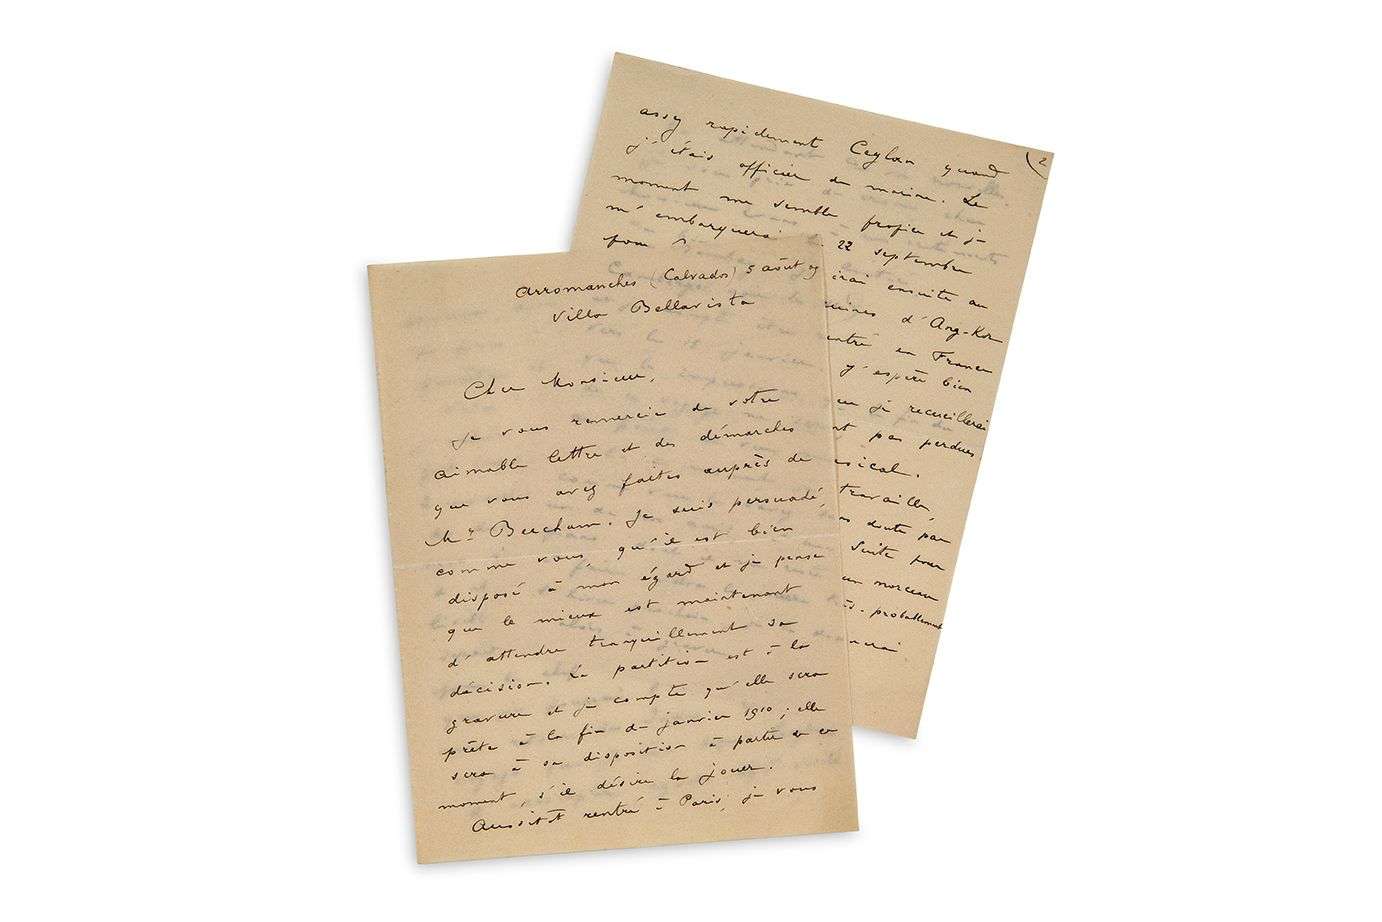 Arromanches (Calvados) 5 août 09
Villa Bellavista
Cher Monsieur,
Je vous remercie de votre
aimable lettre et des démarches
que vous avez faites auprès de
Mr. Beecham. Je suis persuadé,
comme vous qu'il est bien
disposé à mon égard et je pense
que le mieux est maintenant
d'attendre tranquillement sa
décision. La partition est à la
gravure et je compte qu'elle sera
prête à la fin de janvier 1910 ; elle
sera à sa disposition à partir de ce
moment, s'il désire la jouer.
Aussitôt rentré à Paris, je vous
2
assez rapidement Ceylan quand
j'étais officier de marine. Le
moment me semble propice et je
m'embarquerai 22 septembre
pour
irai ensuite au
ruines d'Ang-Kor
rentré en France
j'espère bien
que je recueillerai
nt pas perdues
usical.
travailler,
ns doute par
Suite pour
un morceau
ès. probablement
nerai